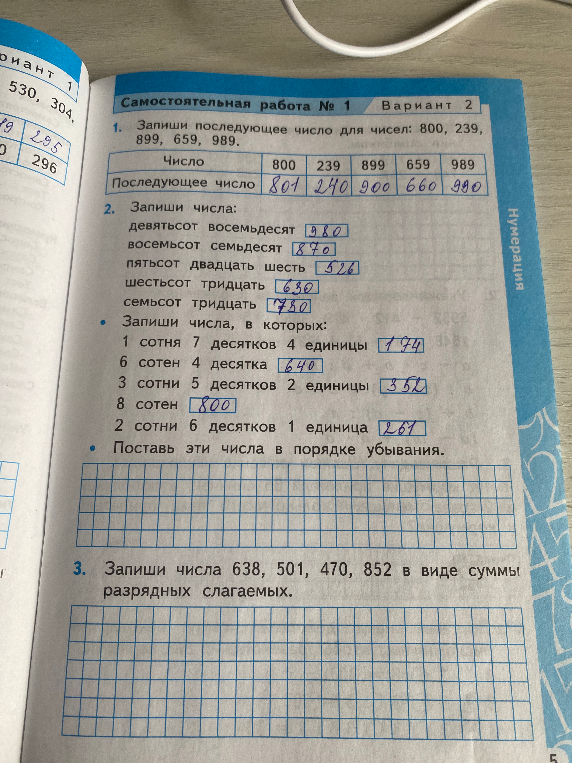 риант 1
530, 304,
295
296
Самостоятельная работа № 1 Вариант 2
1. Запиши последующее число для чисел: 800, 239,
899, 659, 989.
Число 800 239 899 659 989
Последующее число 801 240 900 660 990
2. Запиши числа:
девятьсот восемьдесят 980
восемьсот семьдесят 870
пятьсот двадцать шесть 526
шестьсот тридцать 630
семьсот тридцать 730
• Запиши числа, в которых:
1 сотня 7 десятков 4 единицы 174
6 сотен 4 десятка 640
3 сотни 5 десятков 2 единицы 352
8 сотен 800
2 сотни 6 десятков 1 единица 261
• Поставь эти числа в порядке убывания.
3. Запиши числа 638, 501, 470, 852 в виде суммы
разрядных слагаемых.
Нумерация
5